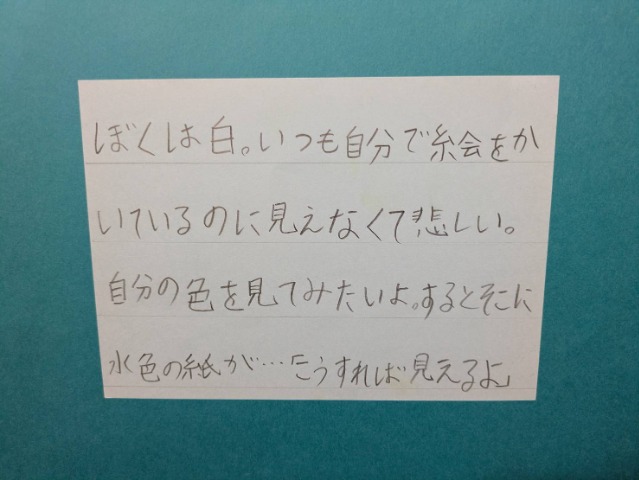 ぼくは白。いつも自分で絵をか
いているのに見えなくて悲しい。
自分の色を見てみたいよ。するとそこに
水色の紙が…「こうすれば見えるよ」